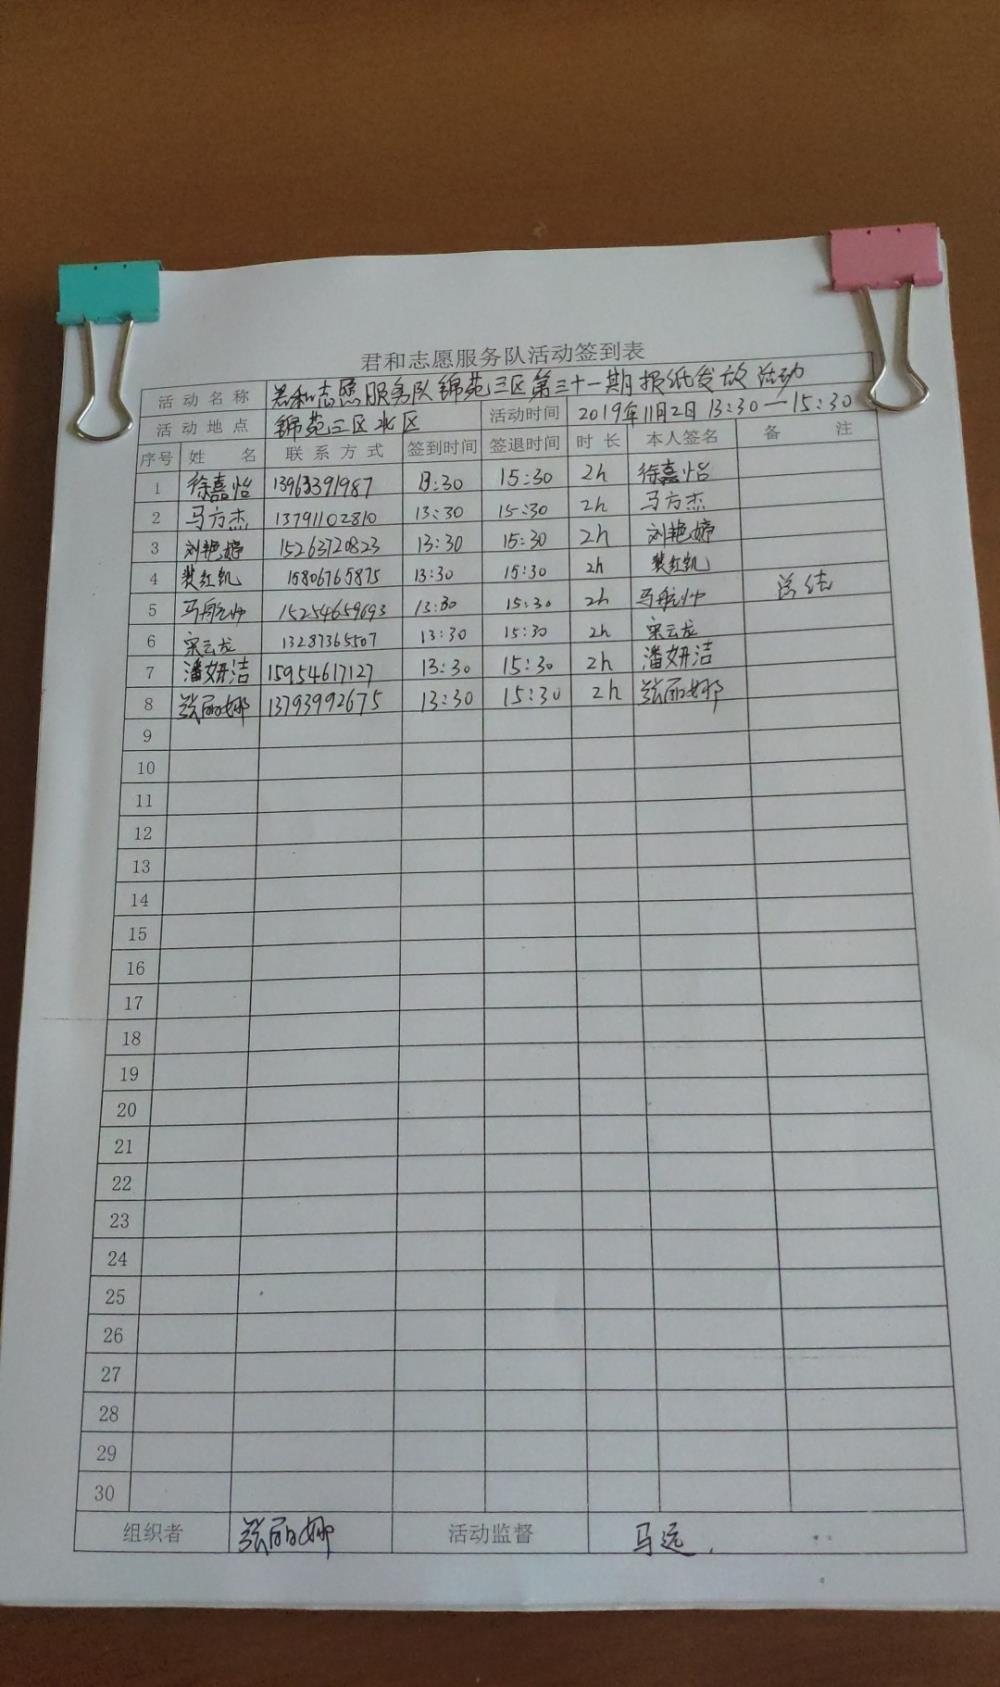 君和志愿服务队活动签到表
活动名称 君和志愿服务队锦苑三区第三十一期报纸发放活动
活动地点 锦苑三区北区 活动时间 2019年11月2日 13:30—15:30
序号 姓名 联系方式 签到时间 签退时间 时长 本人签名 备注
1 徐嘉怡 13963391987 13:30 15:30 2h 徐嘉怡
2 马方杰 13791102810 13:30 15:30 2h 马方杰
3 刘艳婷 15263720823 13:30 15:30 2h 刘艳婷
4 裴红凯 15806765875 13:30 15:30 2h 裴红凯
5 马航帅 15254659693 13:30 15:30 2h 马航帅 总结
6 宋云龙 13287365507 13:30 15:30 2h 宋云龙
7 潘妍洁 15954617127 13:30 15:30 2h 潘妍洁
8 张丽娜 13793992675 13:30 15:30 2h 张丽娜
9
10
11
12
13
14
15
16
17
18
19
20
21
22
23
24
25
26
27
28
29
30
组织者 张丽娜 活动监督 马远